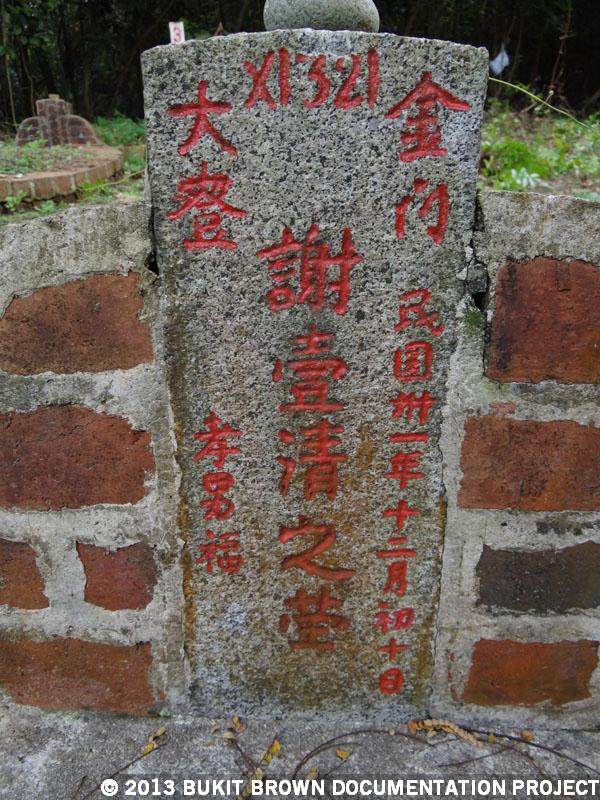 3
X1321
金门
民国卅一年十二月初十日
謝壹清之茔
大登
孝男福
© 2013 BUKIT BROWN DOCUMENTATION PROJECT